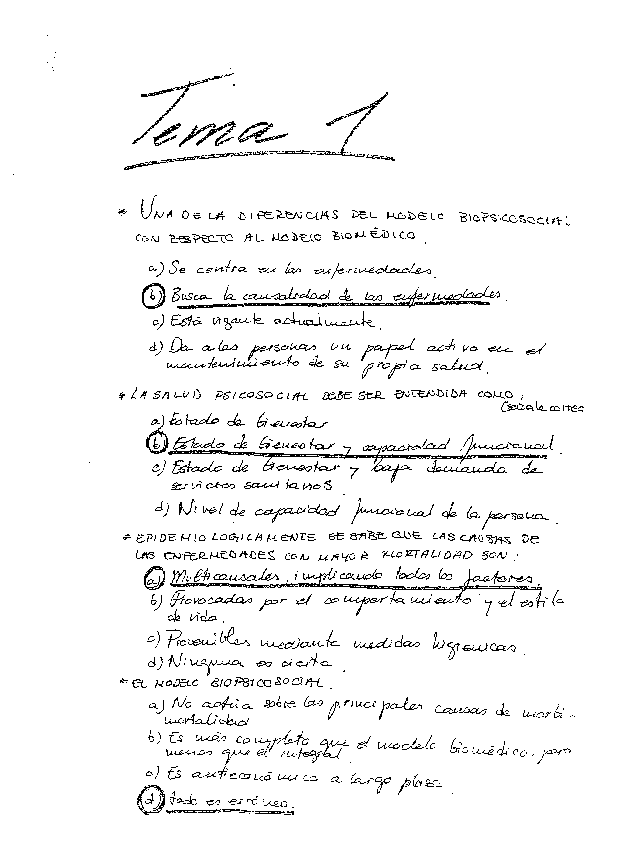 Tema 1
* UNA DE LA DIFERENCIAS DEL MODELO BIOPSICOSOCIAL
CON RESPECTO AL MODELO BIOMÉDICO.
a) Se centra en las enfermedades.
b) Busca la causalidad de las enfermedades.
c) Está vigente actualmente.
d) Da a las personas un papel activo en el
mantenimiento de su propia salud.
* LA SALUD PSICOSOCIAL DEBE SER ENTENDIDA COMO,
a) Estado de bienestar
b) Estado de bienestar y capacidad funcional.
c) Estado de bienestar y baja demanda de
servicios sanitarios
d) Nivel de capacidad funcional de la persona.
* EPIDEMIOLOGICAMENTE SE SABE QUE LAS CAUSAS DE
LAS ENFERMEDADES CON MAYOR MORTALIDAD SON:
a) Multicausales, implicando todos los factores.
b) Provocadas por el comportamiento y el estilo
de vida.
c) Prevenibles mediante medidas higienicas.
d) Ninguna es cierta.
* EL MODELO BIOPSICOSOCIAL.
a) No actúa sobre las principales causas de morbi-
mortalidad
b) Es más completo que el modelo biomédico, pero
menos que el integral
c) Es antieconómico a largo plazo
d) Todo es erróneo.